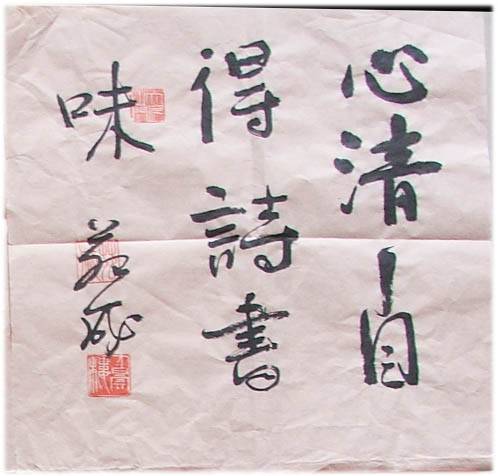 心清自
得詩書
味